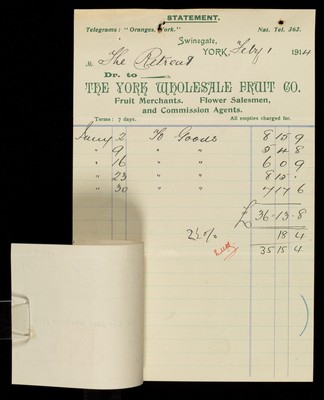 STATEMENT.
Telegrams: "Oranges, York." Nat. Tel. 363.
Swinegate,
YORK, Feby 1 1914
M The Retreat
Dr. to
THE YORK WHOLESALE FRUIT CO.
Fruit Merchants. Flower Salesmen,
and Commission Agents.
Terms: 7 days. All empties charged for.
Jany 2 To Goods 8 15 9
" 9 " " 5 4 8
" 16 " " 6 0 9
" 23 " " 8 15 .
" 30 " " 7 17 6
£ 36-13-8
2½% 18 4
35 15 4